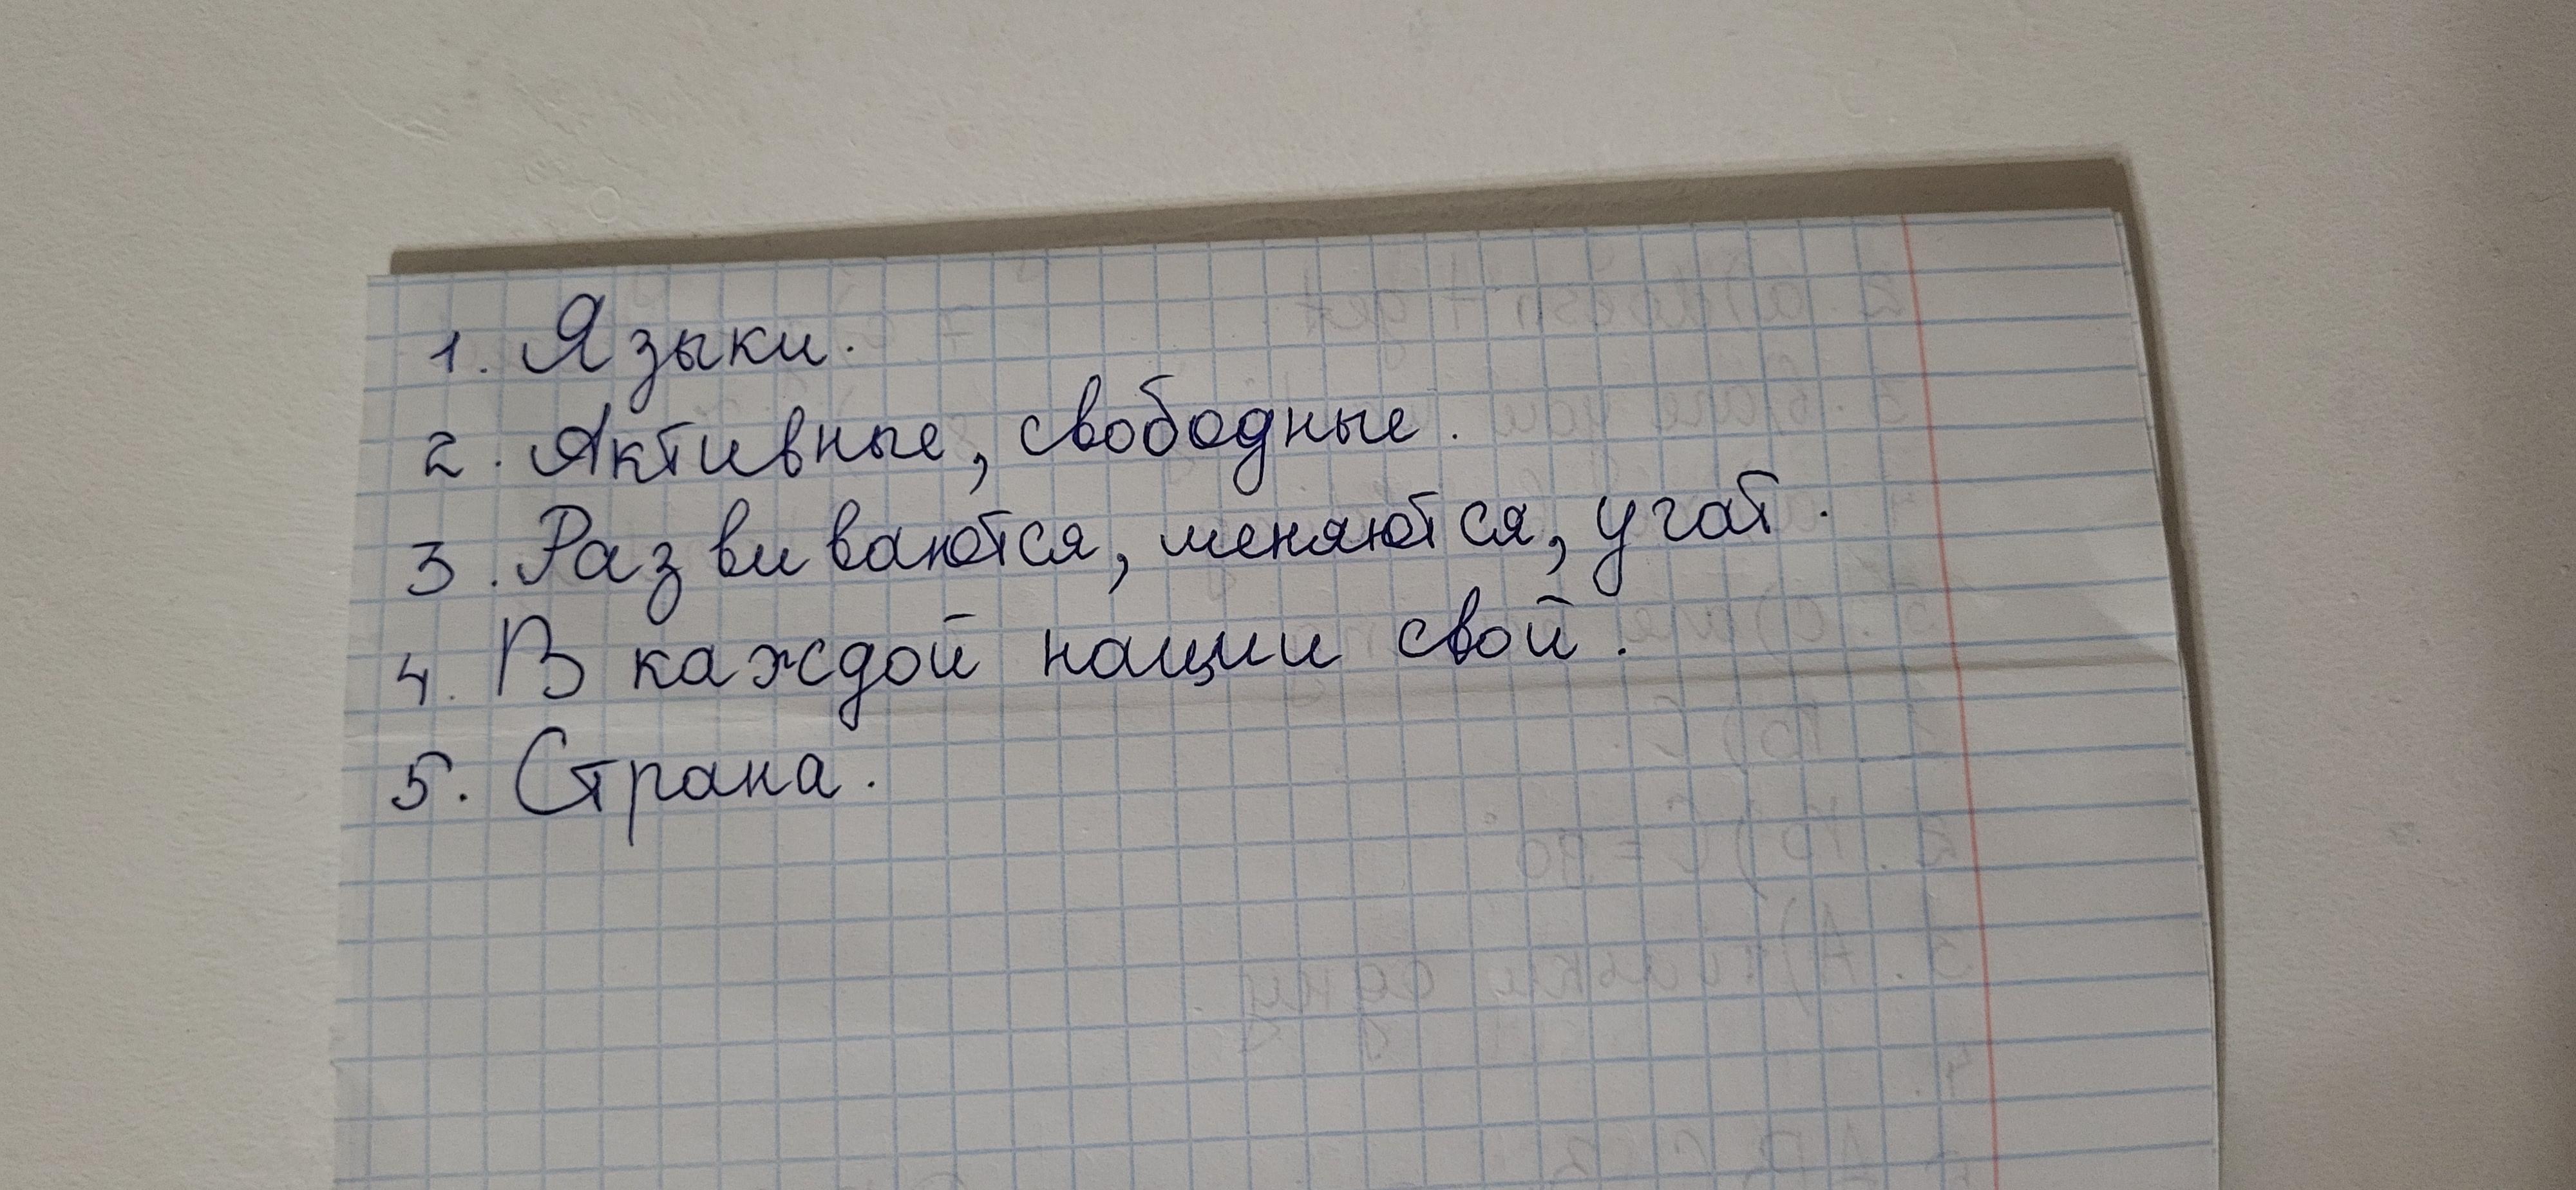 1. Языки.
2. Активные, свободные.
3. Развиваются, меняются, угат.
4. В каждой нации свой.
5. Страна.